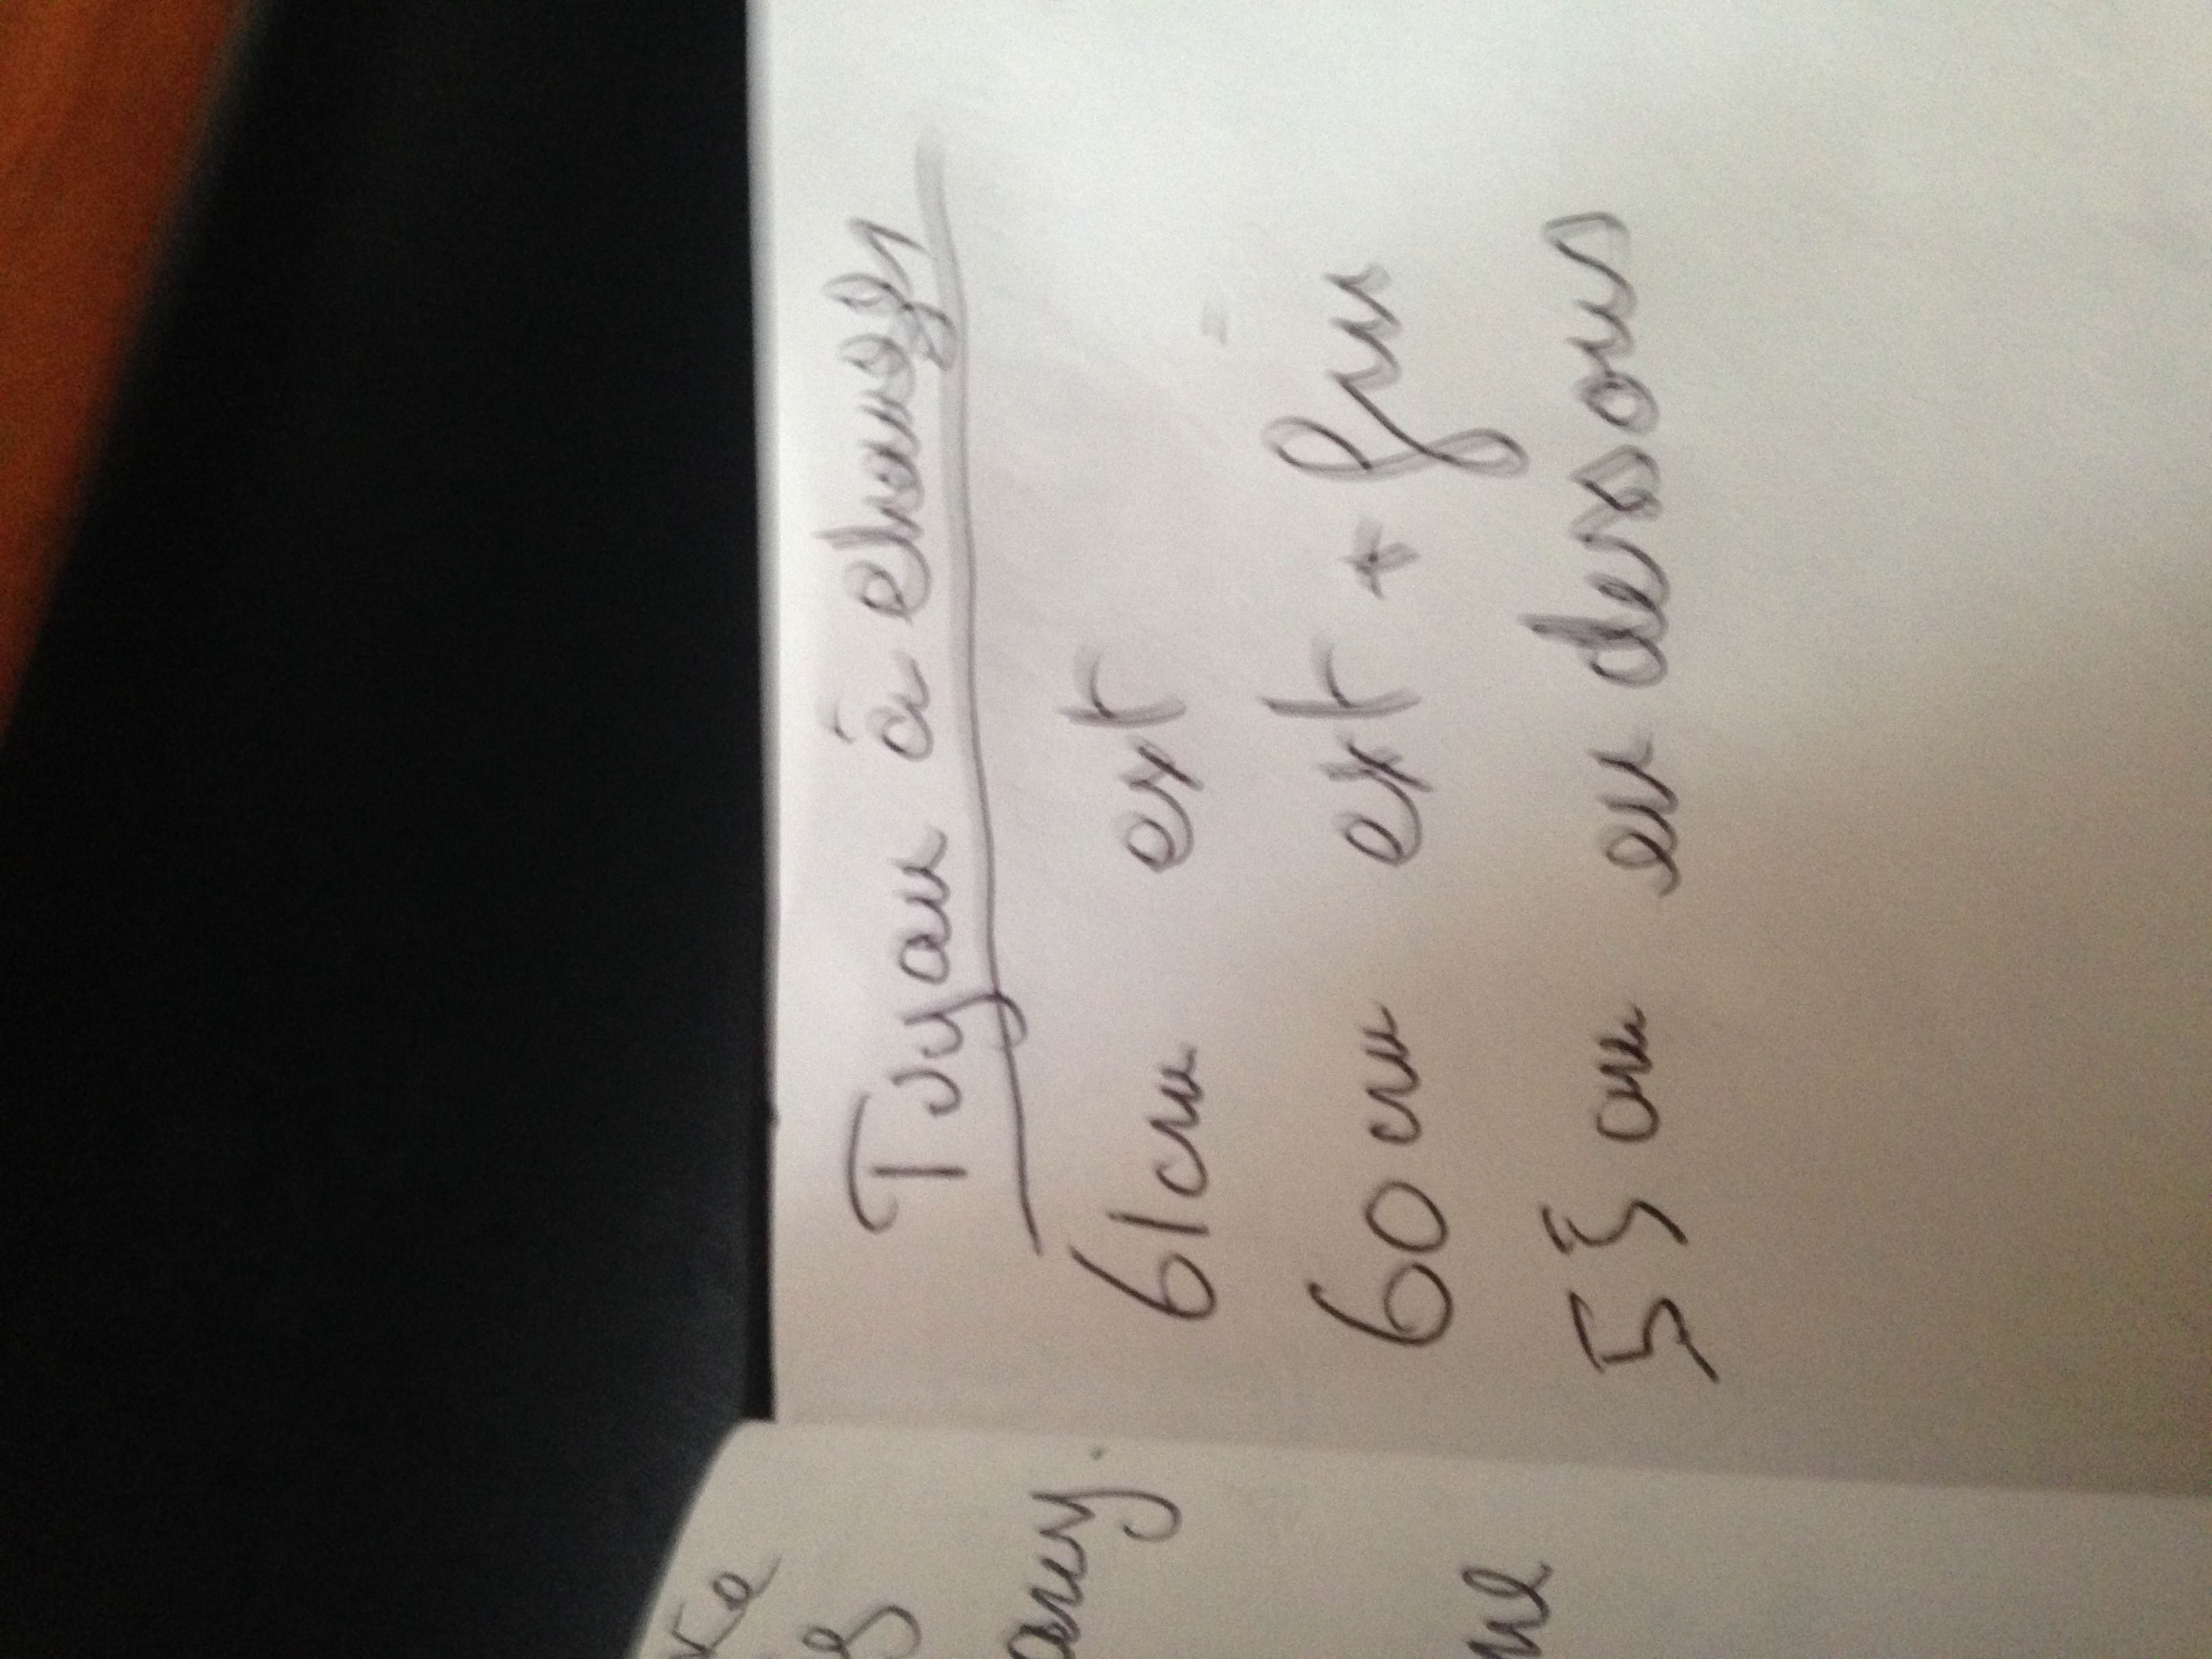 Tuyau à changer
61cm ext
60 cm ext + fin
55 cm en dessous